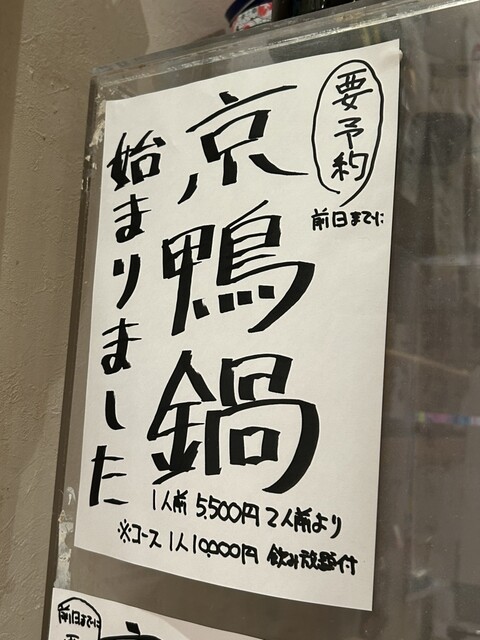 要予約
前日までに
京鴨鍋
始まりました
1人前 5,500円 2人前より
※コース 1人10,000円 飲み放題付
前日までに